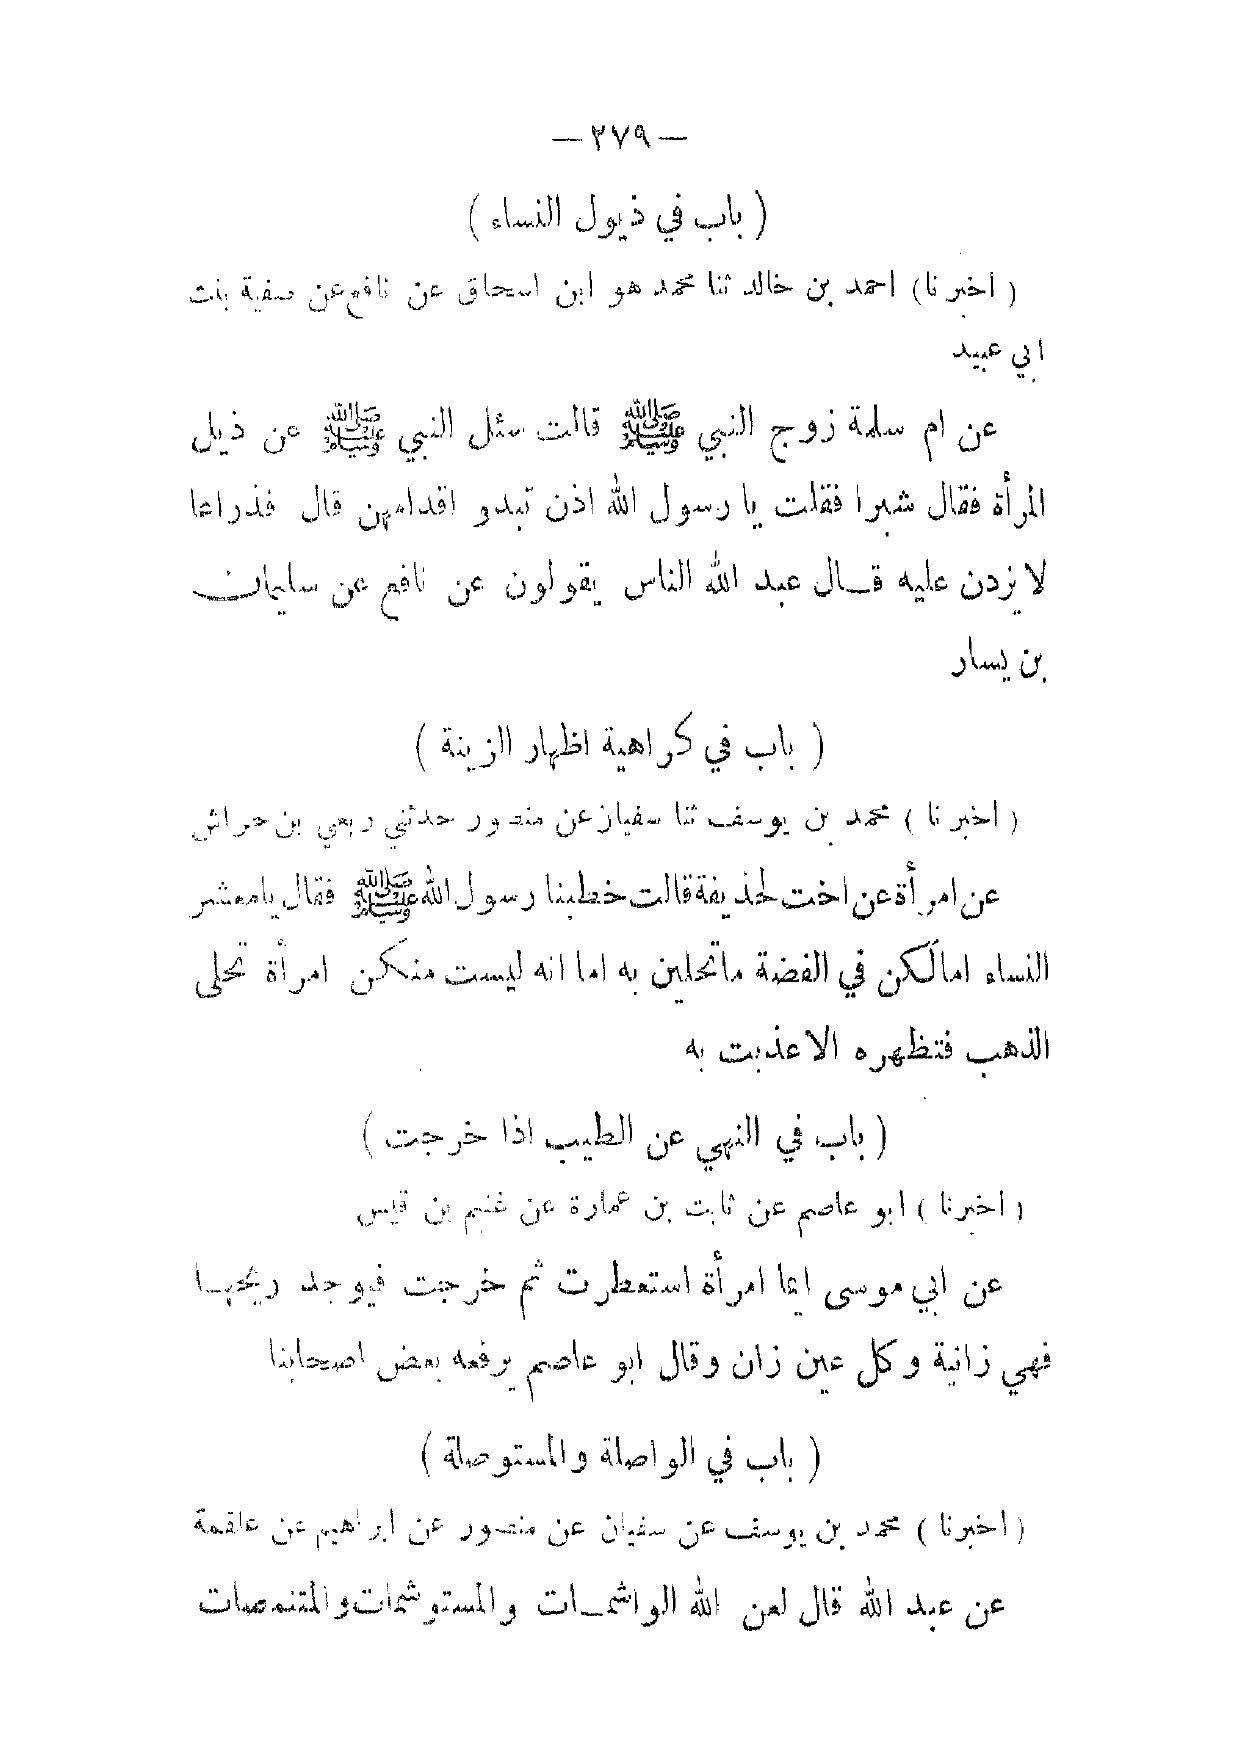 — ٢٧٩ —
( باب في ذيول النساء )
( اخبرنا ) احمد بن خالد ثنا محمد هو ابن اسحاق عن نافع عن صفية بنت
ابي عبيد
عن ام سلمة زوج النبي ﷺ قالت سئل النبي ﷺ عن ذيل
المرأة فقال شبرا فقلت يا رسول الله اذن تبدو اقدامهن قال فذراعا
لا يزدن عليه قـال عبد الله الناس يقولون عن نافع عن سليمان
بن يسار
( باب في كراهية اظهار الزينة )
( اخبرنا ) محمد بن يوسف ثنا سفيان عن منصور حدثني ربعي بن حراش
عن امرأة عن اخت لحذيفة قالت خطبنا رسول الله ﷺ فقال يا معشر
النساء اما لكن في الفضة ما تحلين به اما انه ليست منكن امرأة تحلى
الذهب فتظهره الا عذبت به
( باب في النهي عن الطيب اذا خرجت )
( اخبرنا ) ابو عاصم عن ثابت بن عمارة عن غنيم بن قيس
عن ابي موسى ايما امرأة استعطرت ثم خرجت فيوجد ريحهـا
فهي زانية وكل عين زان وقال ابو عاصم يرفعه بعض اصحابنا
( باب في الواصلة والمستوصلة )
( اخبرنا ) محمد بن يوسف عن سفيان عن منصور عن ابراهيم عن علقمة
عن عبد الله قال لعن الله الواشمـات والمستوشمات والمتنمصات